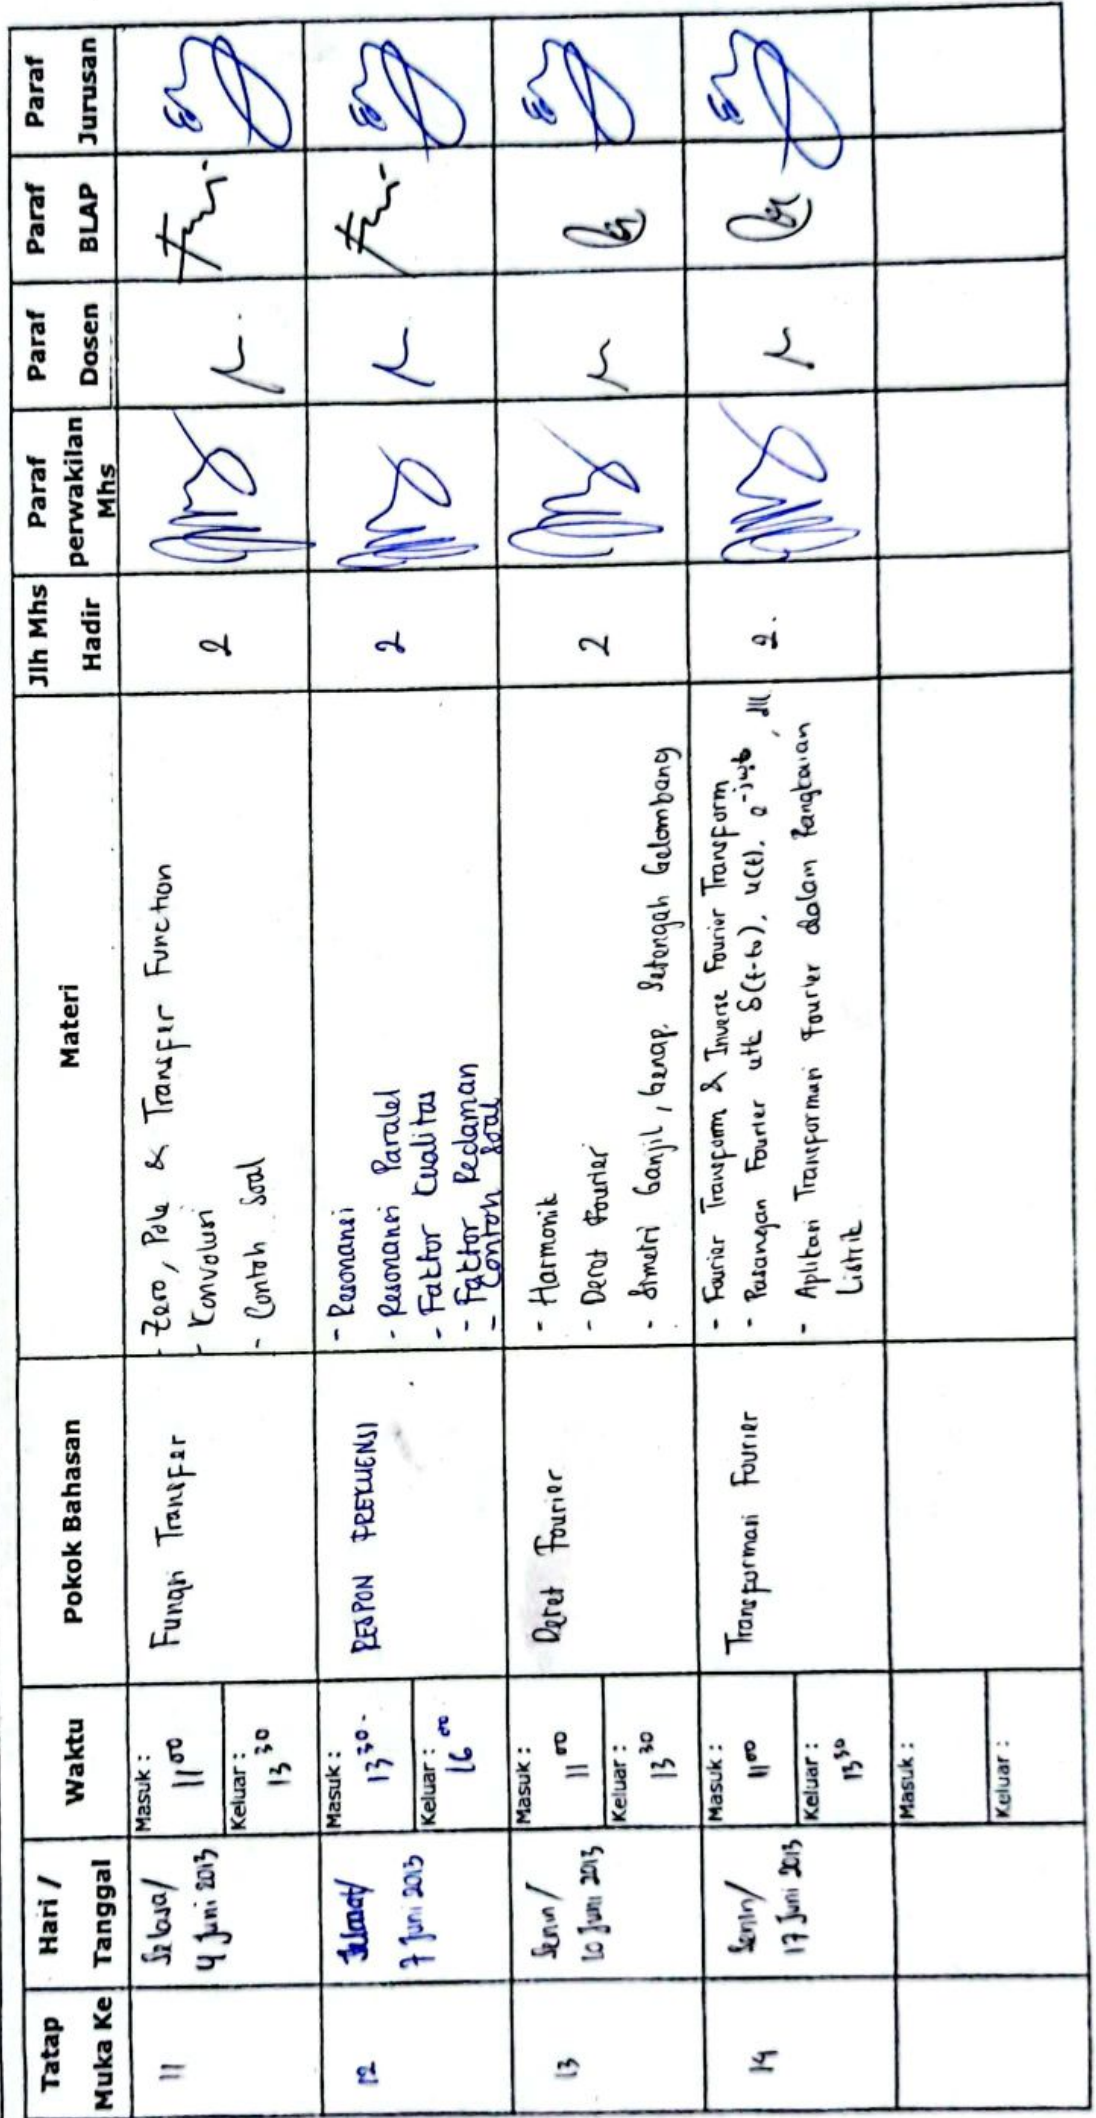 Tatap Muka Ke
Hari / Tanggal
Waktu
Pokok Bahasan
Materi
Jlh Mhs Hadir
Paraf perwakilan Mhs
Paraf Dosen
Paraf BLAP
Paraf Jurusan
11
Selasa/
4 Juni 2013
Masuk :
11 00
Keluar :
13 30
Fungsi Transfer
- Zero, Pole & Transfer Function
- Konvolusi
- Contoh Soal
2
12
7 Juni 2013
Masuk :
13 30 -
Keluar :
16 00
RESPON FREKUENSI
- Resonansi
- Resonansi Paralel
- Faktor Kualitas
- Faktor Redaman
- Contoh Soal
2
13
Senin/
10 Juni 2013
Masuk :
11 00
Keluar :
13 30
Deret Fourier
- Harmonik
- Deret Fourier
- Simetri Ganjil, Genap, Setengah Gelombang
2
14
Senin/
17 Juni 2013
Masuk :
11 00
Keluar :
13 30
Transformasi Fourier
- Fourier Transform & Inverse Fourier Transform
- Pasangan Fourier utk δ(t-to), u(t), e-jωot, dll
- Aplikasi Transformasi Fourier dalam Rangkaian
Listrik
2.
Masuk :
Keluar :